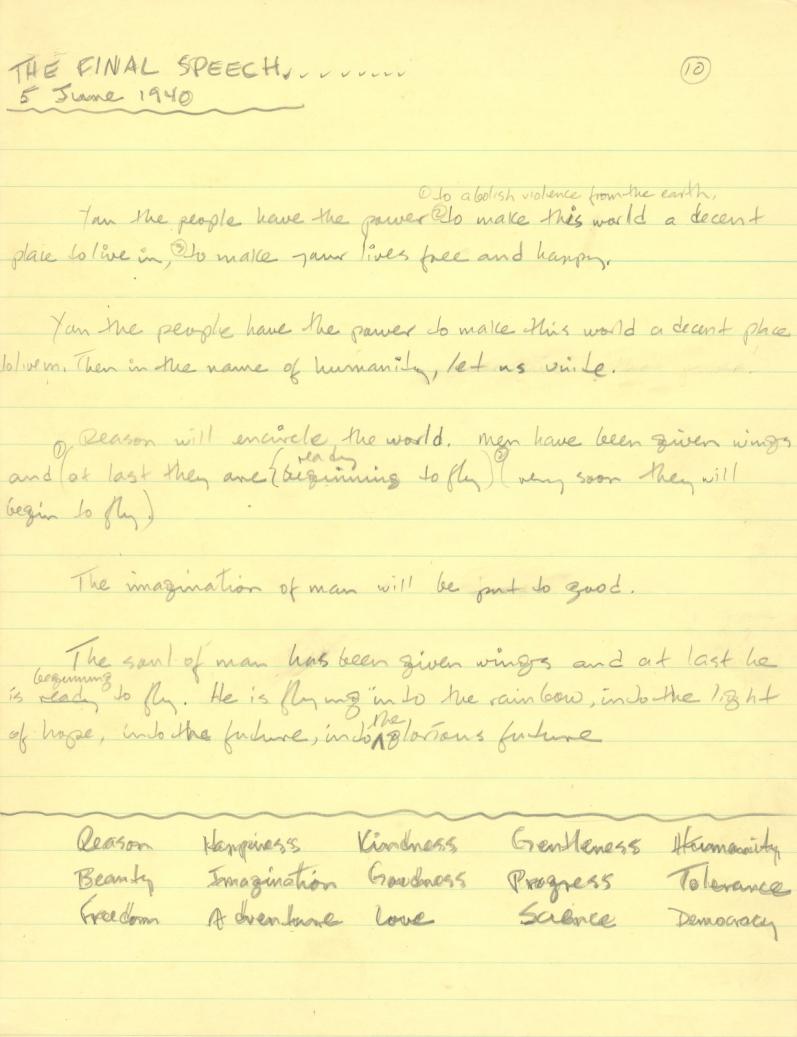 THE FINAL SPEECH.........
10
5 June 1940
① to abolish violence from the earth,
You the people have the power ② to make this world a decent
place to live in, ③ to make your lives free and happy.
You the people have the power to make this world a decent place
to live in. Then in the name of humanity, let us unite.
Reason will encircle the world. Men have been given wings
ready
and ① (at last they are (beginning to fly) ② (very soon they will
begin to fly)
The imagination of man will be put to good.
The soul of man has been given wings and at last he
beginning
is ready to fly. He is flying into the rainbow, into the light
the
of hope, into the future, into glorious future
Reason Happiness Kindness Gentleness Humanity
Beauty Imagination Goodness Progress Tolerance
Freedom Adventure Love Science Democracy